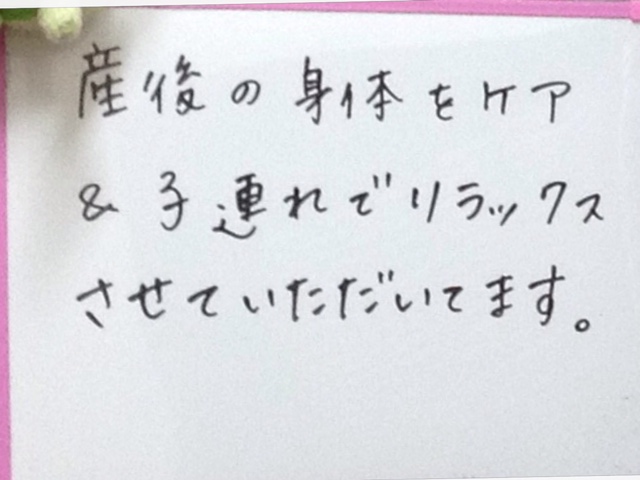 産後の身体をケア
& 子連れでリラックス
させていただいてます。